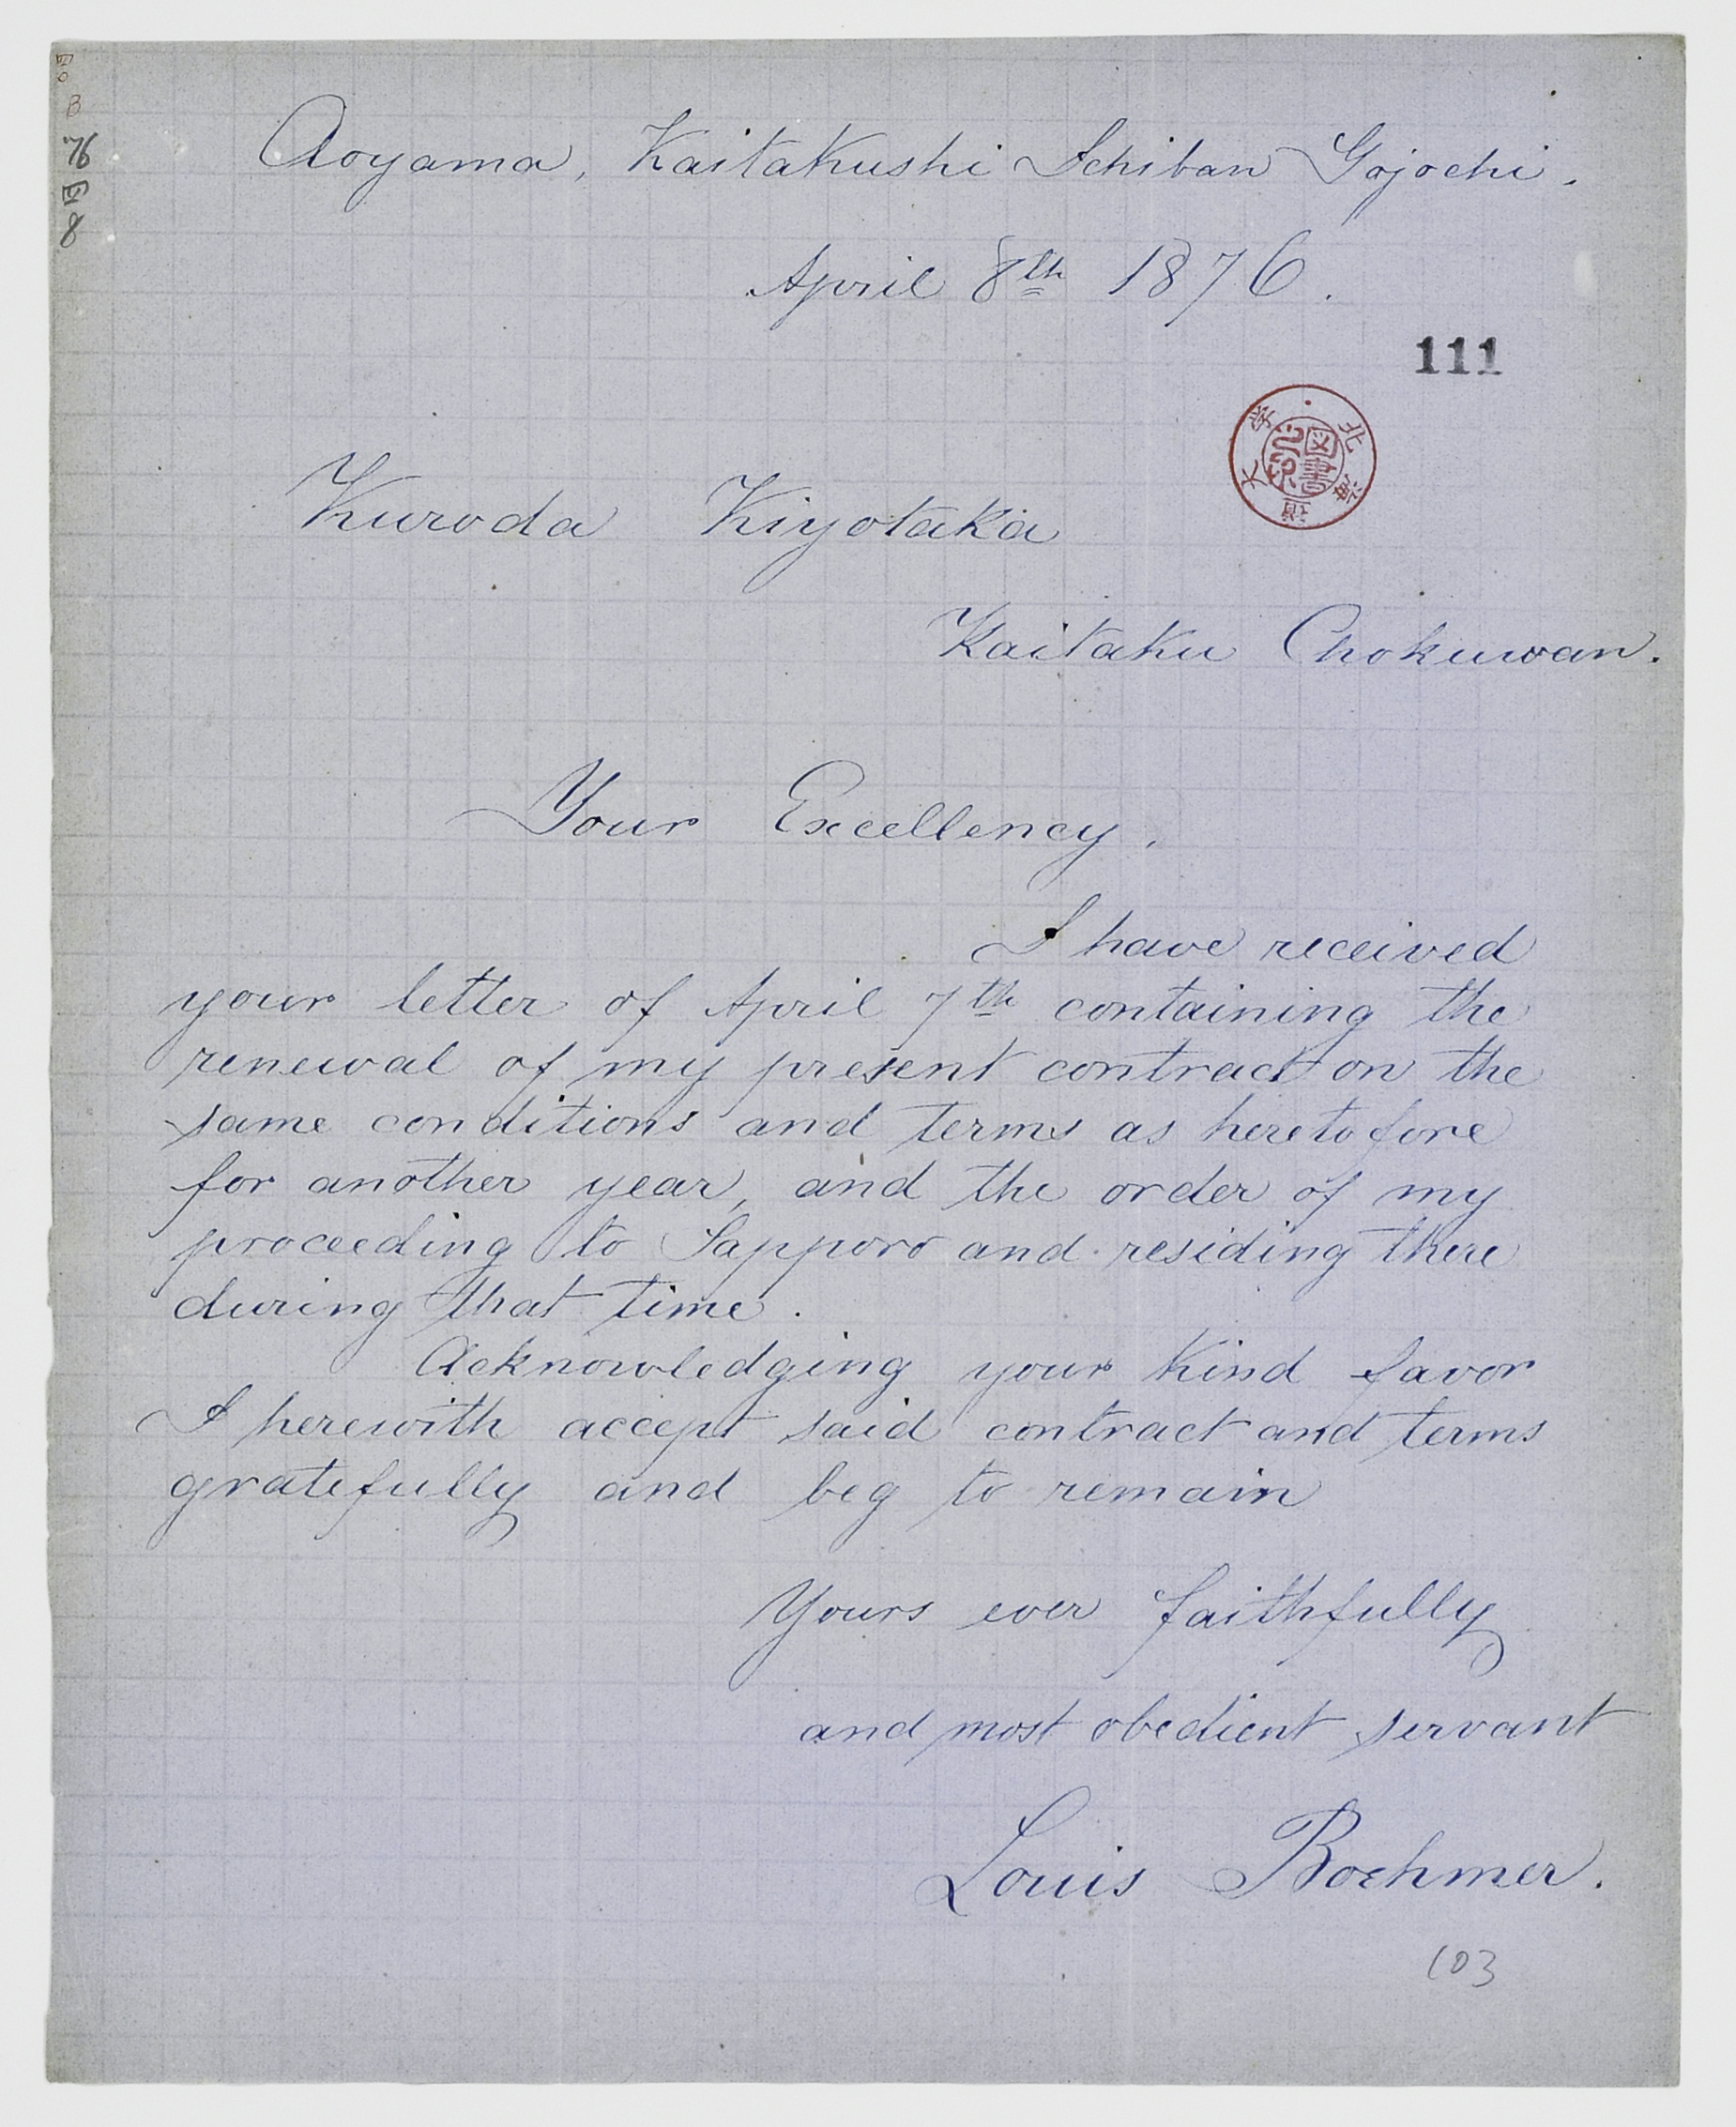 Aoyama, Kaitakushi Ichiban Gojochi.
April 8th 1876.
111
北海道大学
図書
Kuroda Kiyotaka
Kaitaku Chokuwan.
Your Excellency,
I have received
your letter of April 7th containing the
renewal of my present contract on the
same conditions and terms as heretofore
for another year, and the order of my
proceeding to Sapporo and residing there
during that time.
Acknowledging your kind favor
I herewith accept said contract and terms
gratefully and beg to remain
Yours ever faithfully
and most obedient servant
Louis Boehmer.
103